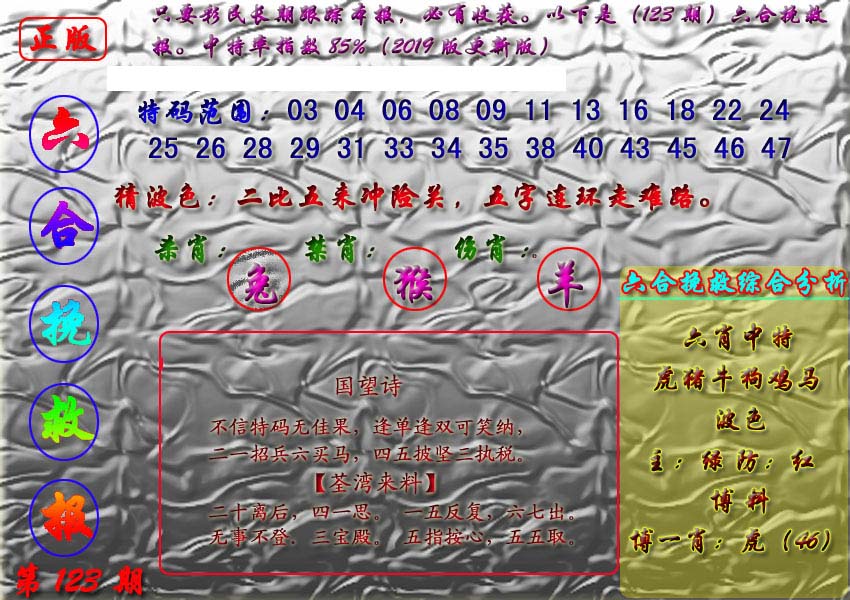 正版
只要彩民长期跟踪本报，必有收获。以下是（123期）六合挽救
报。中特率指数85%（2019版更新版）
六合挽救报
第123期
特码范围：03 04 06 08 09 11 13 16 18 22 24
25 26 28 29 31 33 34 35 38 40 43 45 46 47
猜波色：二比五来冲险关，五字连环走难路。
杀肖：兔 禁肖：猴 伤肖：。羊
国望诗
不信特码无佳果，逢单逢双可笑纳，
二一招兵六买马，四五披坚三执税。
【荃湾来料】
二十离后，四一思。 一五反复，六七出。
无事不登．三宝殿。 五指按心，五五取。
六合挽救综合分析
六肖中特
虎猪牛狗鸡马
波色
主：绿防：红
博料
博一肖：虎（46）